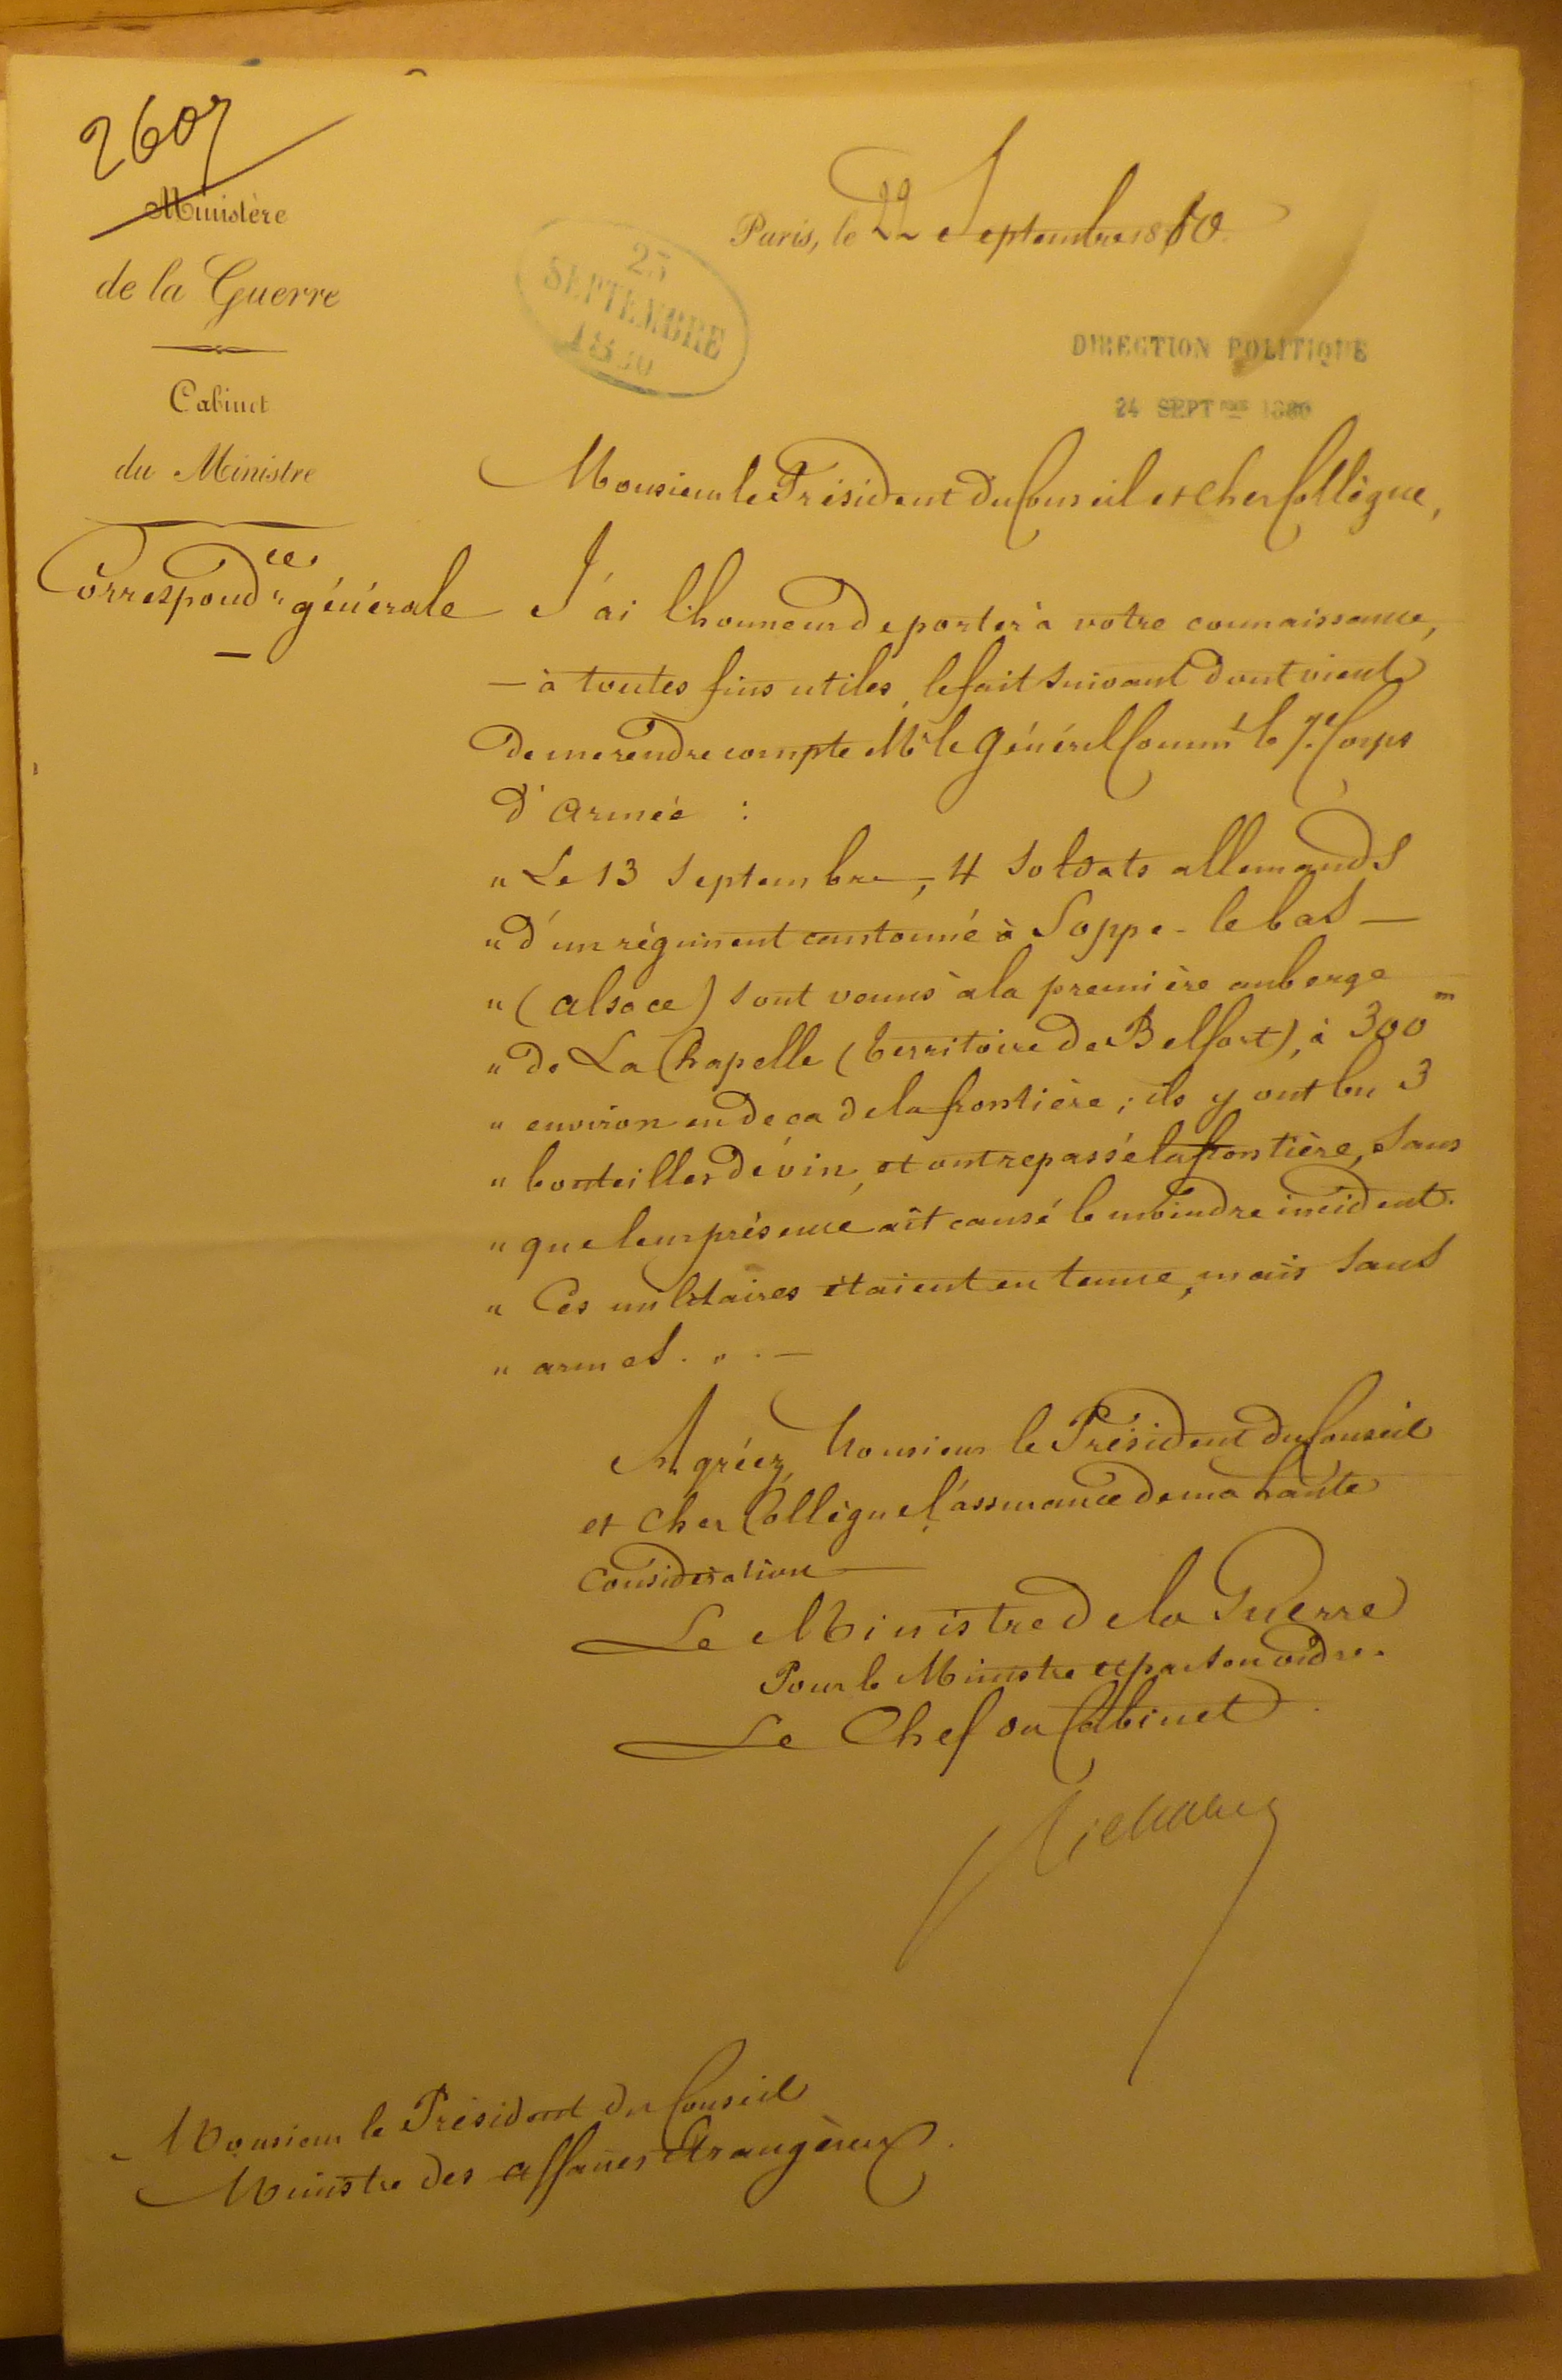 2607
Ministère
de la Guerre
Cabinet
du Ministre
Correspond.ces générale
Paris, le 22 Septembre 1880.
23
SEPTEMBRE
1880
DIRECTION POLITIQUE
24 SEPT 1880
Monsieur le Président du Conseil et cher Collègue,
J'ai l'honneur de porter à votre connaissance,
— à toutes fins utiles, le fait suivant dont vient
de me rendre compte Mr le Général Commt le 7e Corps
d'armée :
" Le 13 Septembre, 4 Soldats allemands
" d'un régiment cantonné à Soppe-le bas —
" (alsace) sont venus à la première auberge
" de La Chapelle (territoire de Belfort), à 300m
" environ en deca de la frontière ; ils y ont bu 3
" bouteilles de vin, et ont repassé la frontière, sans
" que leur présence ait causé le moindre incident.
" Ces militaires étaient en tenue, mais sans
" armes. " . —
Agréez, Monsieur le Président du Conseil
et cher Collègue, l'assurance de ma haute
Considération —
Le Ministre de la Guerre
Pour le Ministre et par son ordre.
Le Chef du Cabinet
Monsieur le Président du Conseil
Ministre des affaires Etrangères.